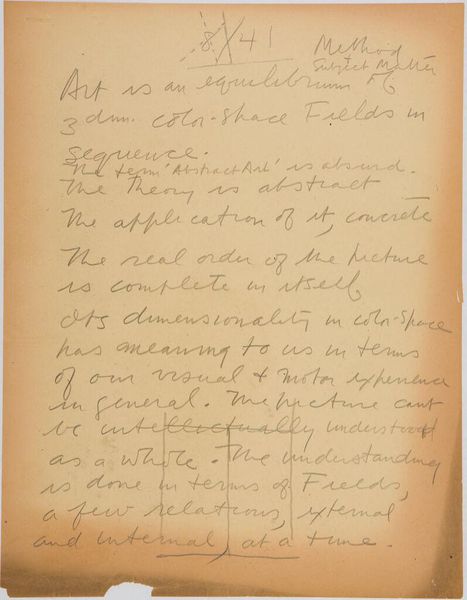 8/41
Method
Subject Matter
Art is an equilibrium of
3 dim. color-space Fields in
sequence.
The term 'Abstract Art' is absurd.
The Theory is abstract
The application of it, concrete
The real order of the picture
is complete in itself
Its dimensionality in color-space
has meaning to us in terms
of our visual & motor experience
in general. The picture can't
be intellectually understood
as a whole. The understanding
is done in terms of Fields,
a few relations, external
and internal, at a time.